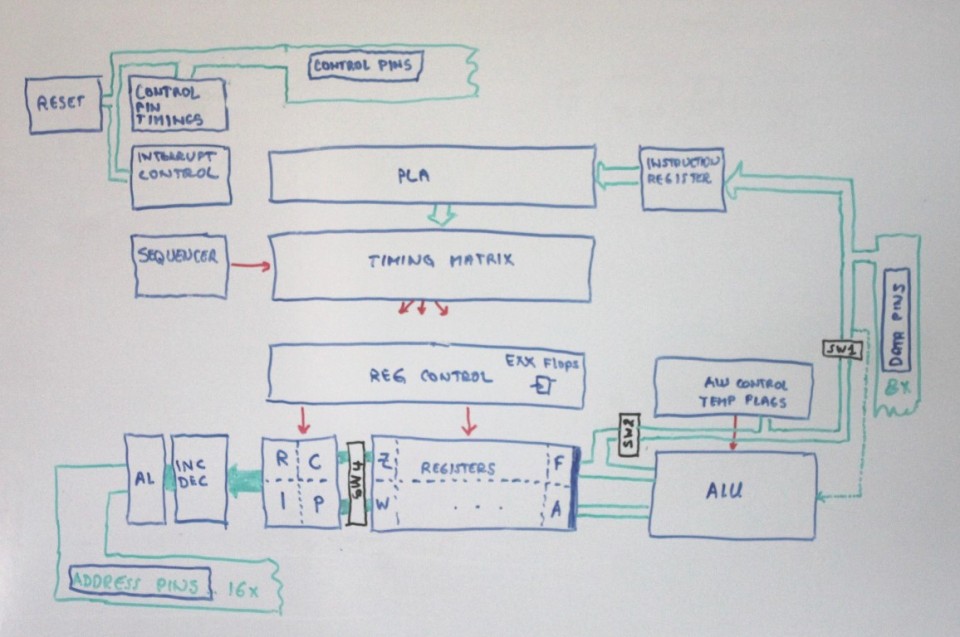 CONTROL PINS
RESET
CONTROL
PIN
TIMINGS
INTERRUPT
CONTROL
PLA
INSTRUCTION
REGISTER
SEQUENCER
TIMING MATRIX
DATA PINS
8x
SW1
REG CONTROL
EXX Flops
ALU CONTROL
TEMP FLAGS
SW2
AL
INC
DEC
R C
I P
SW4
Z
W
REGISTERS
. . .
F
A
ALU
ADDRESS PINS 16x